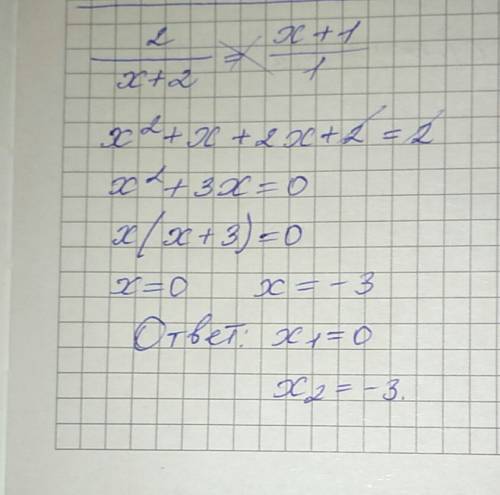 2/(x+2) = (x+1)/1
x² + x + 2x + 2 = 2
x² + 3x = 0
x(x+3) = 0
x = 0 x = -3
Ответ: x₁ = 0
x₂ = -3.